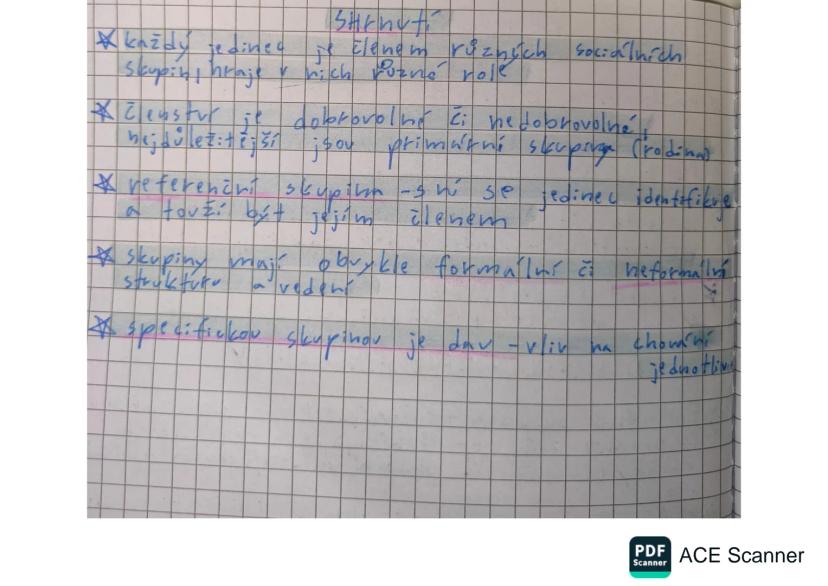 SHrnutí
☆ každý jedinec je členem různých sociálních
skupin, hraje v nich různé role
☆ členství je dobrovolné či nedobrovolné,
nejdůležitější jsou primární skupiny (rodina)
☆ referenční skupina - s ní se jedinec identifikuje
a touží být jejím členem
☆ skupiny mají obvykle formální či neformální
strukturu a vedení
☆ specifickou skupinou je dav - vliv na chování
jednotlivce
PDF
Scanner
ACE Scanner